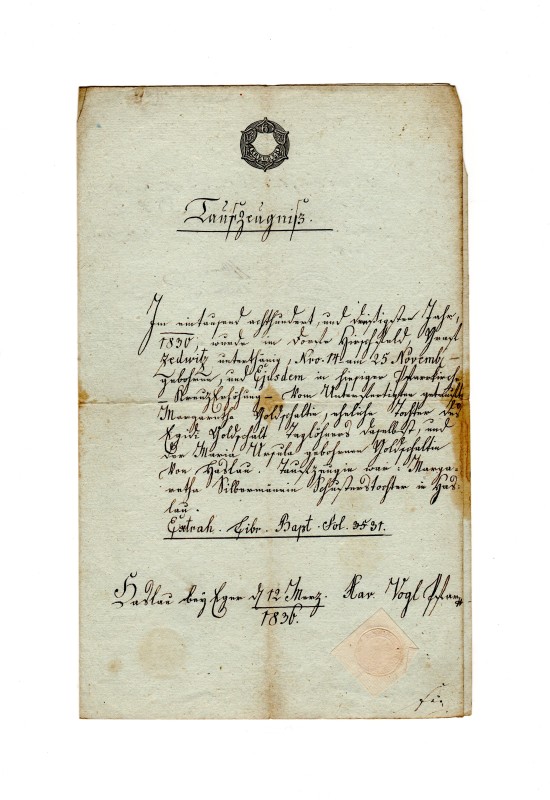 Taufzeugniß.
Im eintausend achthundert, und dreißigsten Jahr,
1830, wurde im Dorfe Hirschfeld, Graf
Zedwitz unterthänig, Nro. 14 am 25 Novemb-
gebohren, und Ejusdem in hiesiger Pfarrkirche
Kreuz Erhöhung - vom Unterfertigten getauft
Margaretha Voldschaltin, eheliche Tochter des
Egidi Voldschalt Taglöhners daselbst, und
der Maria Ursula gebohrnen Voldschaltin
von Haslau. Taufzeugin war: Marga-
retha Silbermännin Schusterstochter in Has-
lau.
Extrah. Libr. Bapt. Fol. 3531.
Haslau bey Eger d 12 Merz. Xav. Vogl Pfarr
1836.